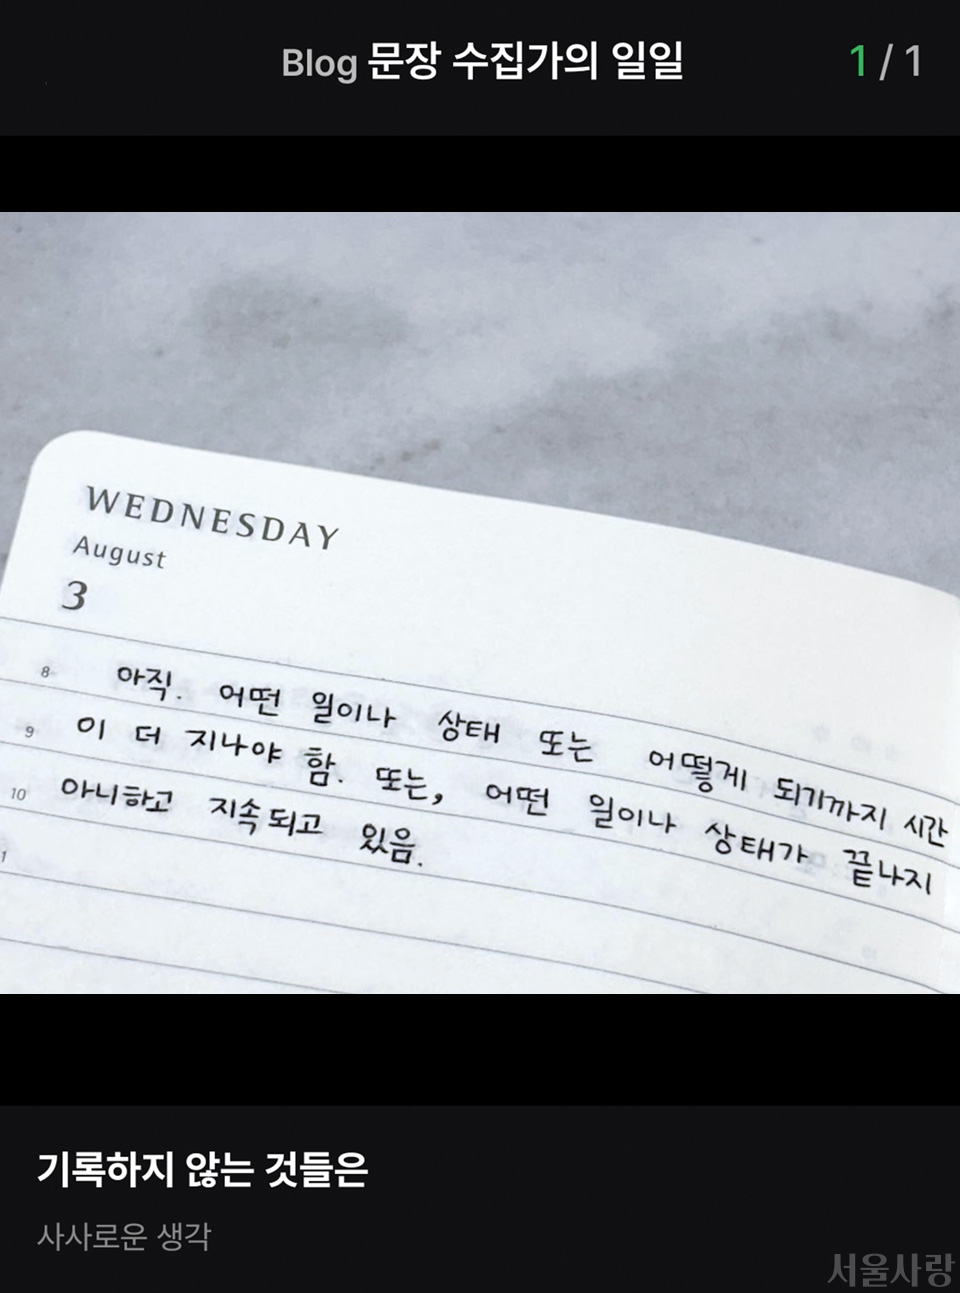 Blog 문장 수집가의 일일 1 / 1
WEDNESDAY
August
3
8 아직. 어떤 일이나 상태 또는 어떻게 되기까지 시간
9 이 더 지나야 함. 또는, 어떤 일이나 상태가 끝나지
10 아니하고 지속되고 있음.
1
기록하지 않는 것들은
사사로운 생각
서울사랑